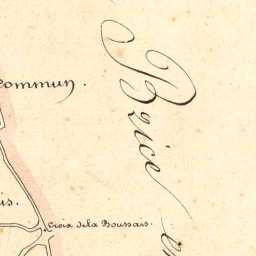 commun.
Brice
is.
Croix de la Boussais.